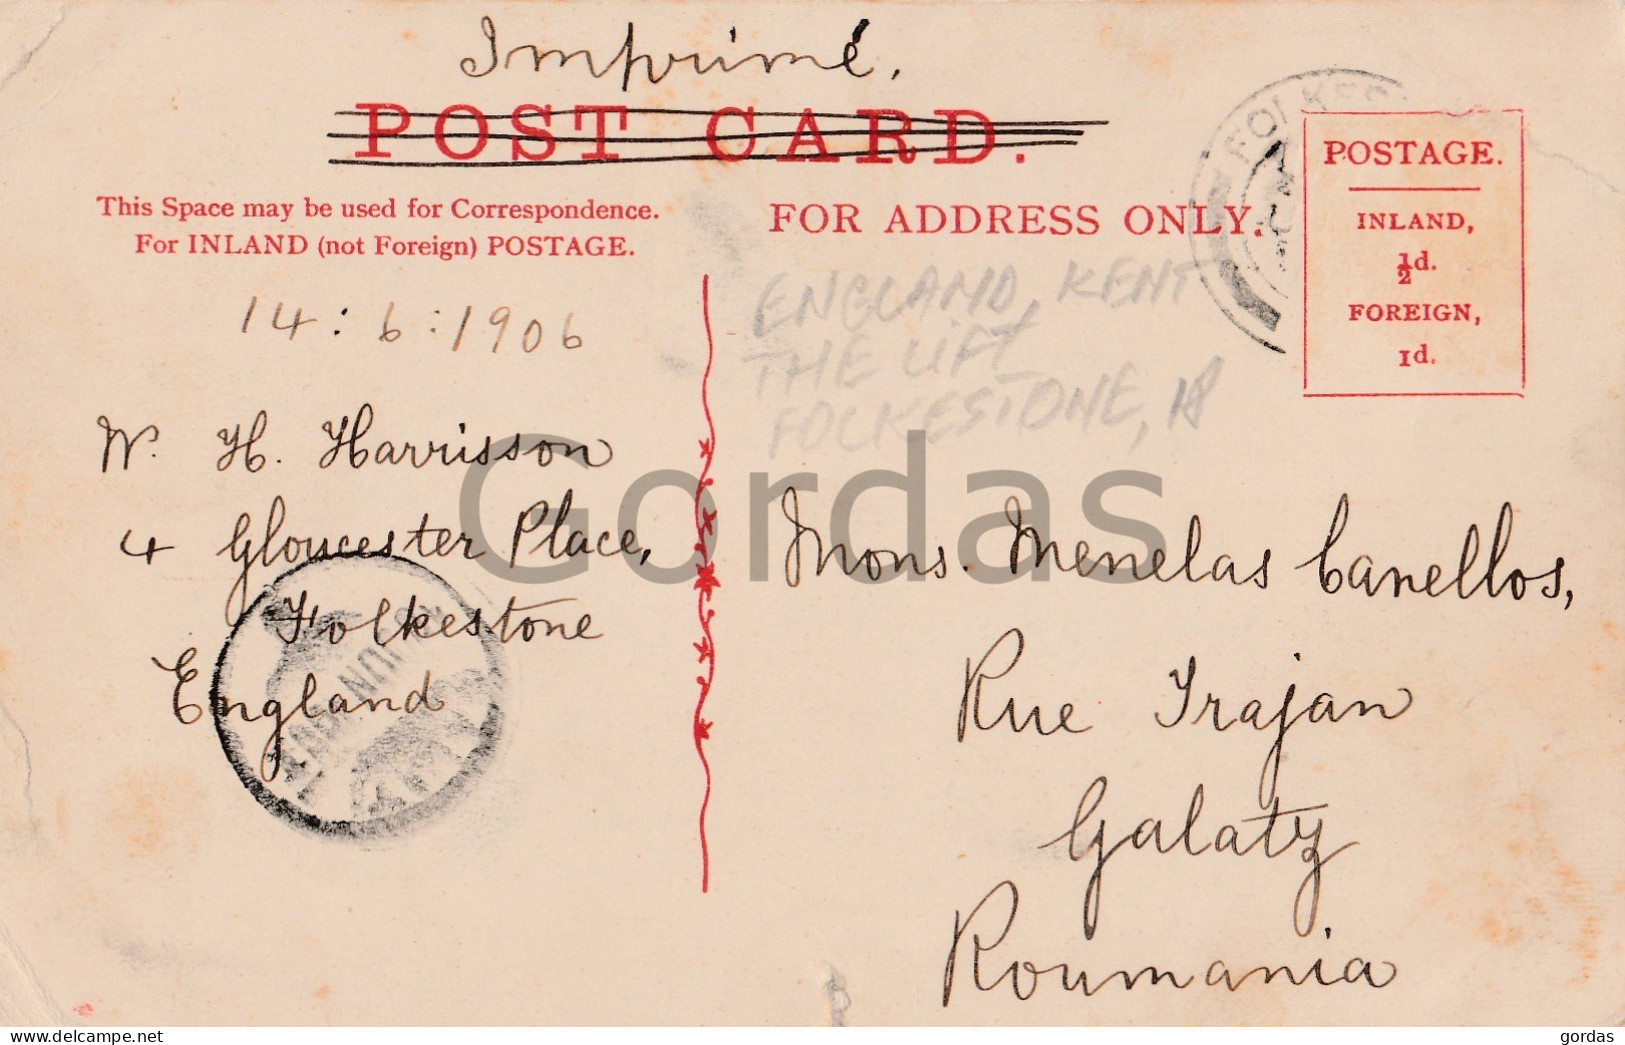 Imprimé.
POST CARD.
This Space may be used for Correspondence.
For INLAND (not Foreign) POSTAGE.
FOR ADDRESS ONLY.
POSTAGE.
INLAND,
½d.
FOREIGN,
1d.
14 : 6 : 1906
ENGLAND, KENT
THE LIFT
FOLKESTONE,
W. H. Harrisson
4 Gloucester Place,
Folkestone
England
Mons. Menelas Canellos,
Rue Trajan
Galatz
Roumania
Gordas
http://www.delcampe.net
gordas